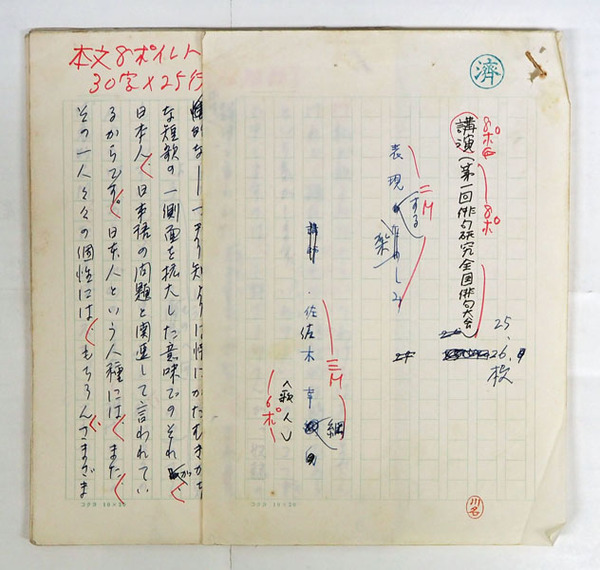 済
講演(第一回俳句研究全国俳句大会)
8ポ
8ポ
25、26、枚
表現する楽しみ
二M
佐佐木幸綱
三M
<歌人>
6ポ
川名
コクヨ 10×20
本文8ポイント
30字×25行
な短歌の一側面を拡大した意味でのそれが
日本人、日本語の問題と関連して言われてい
るからです。日本人という人種には、また
その一人々々の個性には、もちろんさまざま
コクヨ 10×20